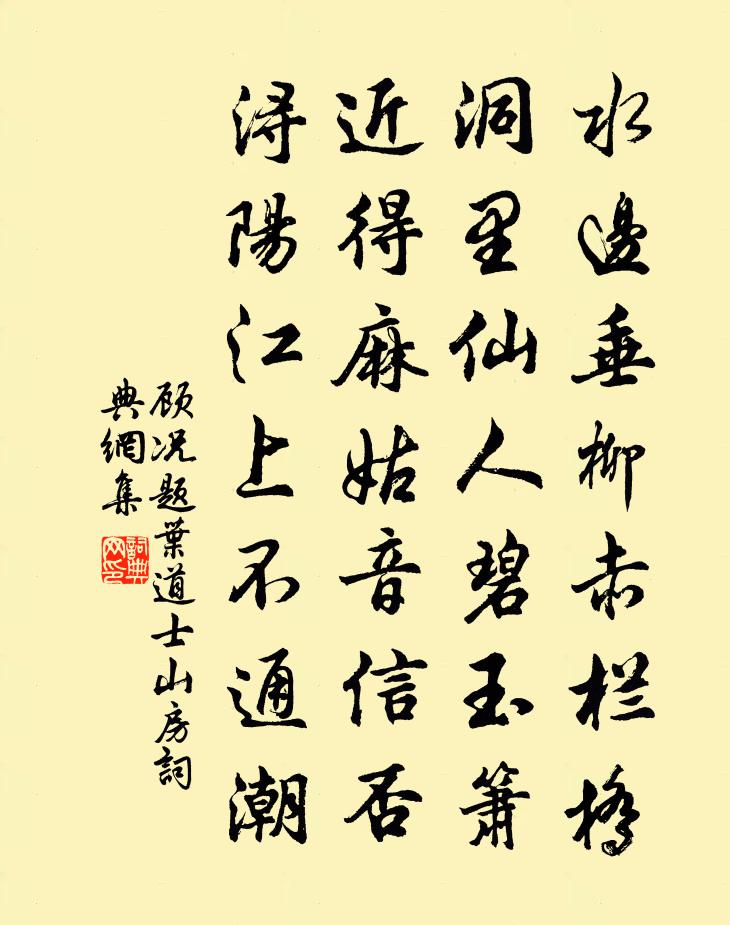 水邊垂柳赤栏橋
洞里仙人碧玉箫
近得麻姑音信否
浔陽江上不通潮
顾况题葉道士山房詞
典網集
詞典
网印